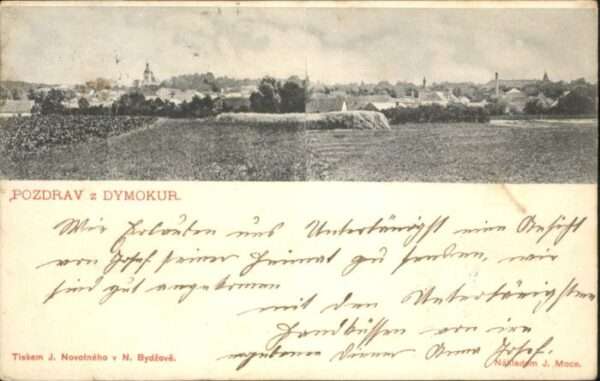 POZDRAV z DYMOKUR.
Wir Erlauben uns Untertänigst eine Ansicht
von Josef seiner Heimat zu senden, wir
sind gut angekomen
mit den Untertänigsten
Handküssen von ire
ergebenen Diener Anna Josef.
Tiskem J. Novotného v N. Bydžově.
Nákladem J. Moce.